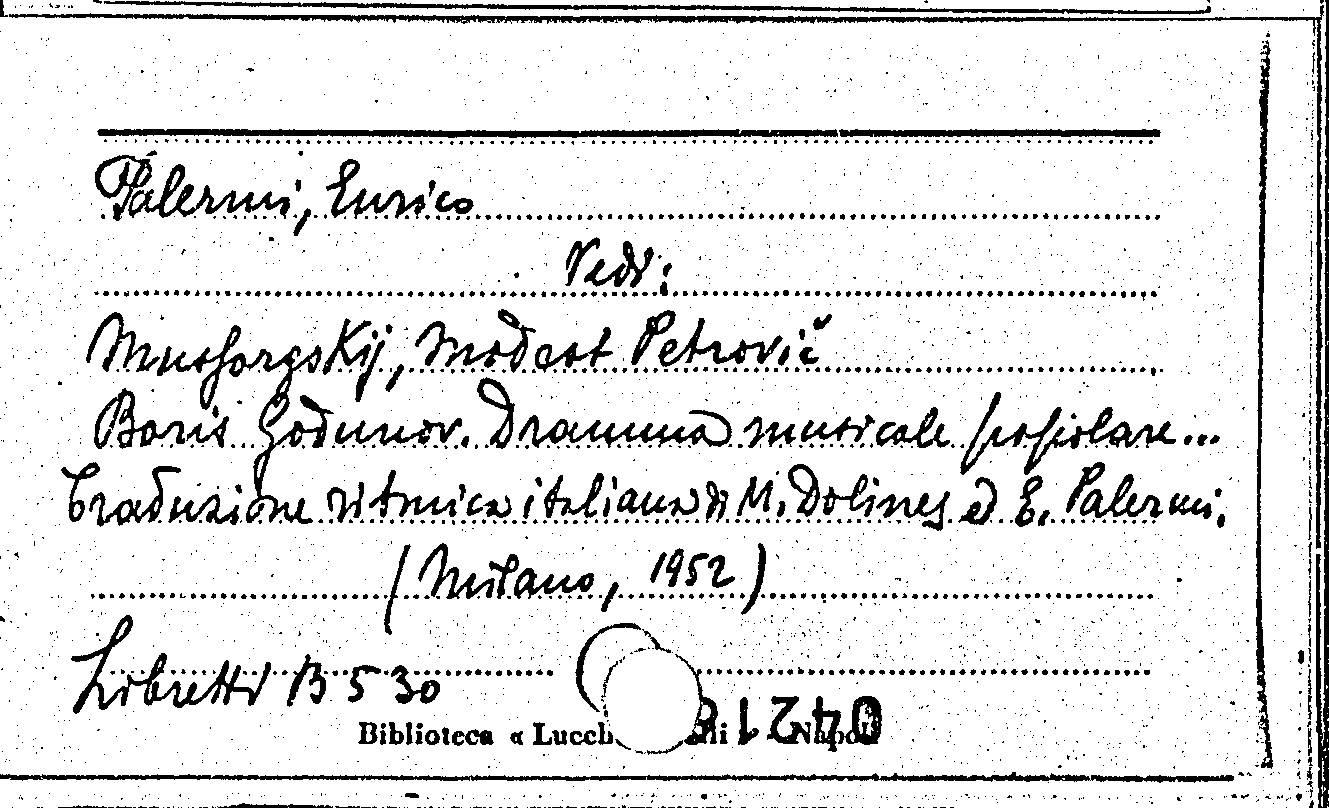 Palermi, Enrico
Vedi:
Mussorgskij, Modest Petrovič
Boris Godunov. Dramma musicale popolare...
Traduzione ritmica italiana di M. Dolines ed E. Palermi.
(Milano, 1952)
Libretti B 530
Biblioteca « Lucch
Napoli